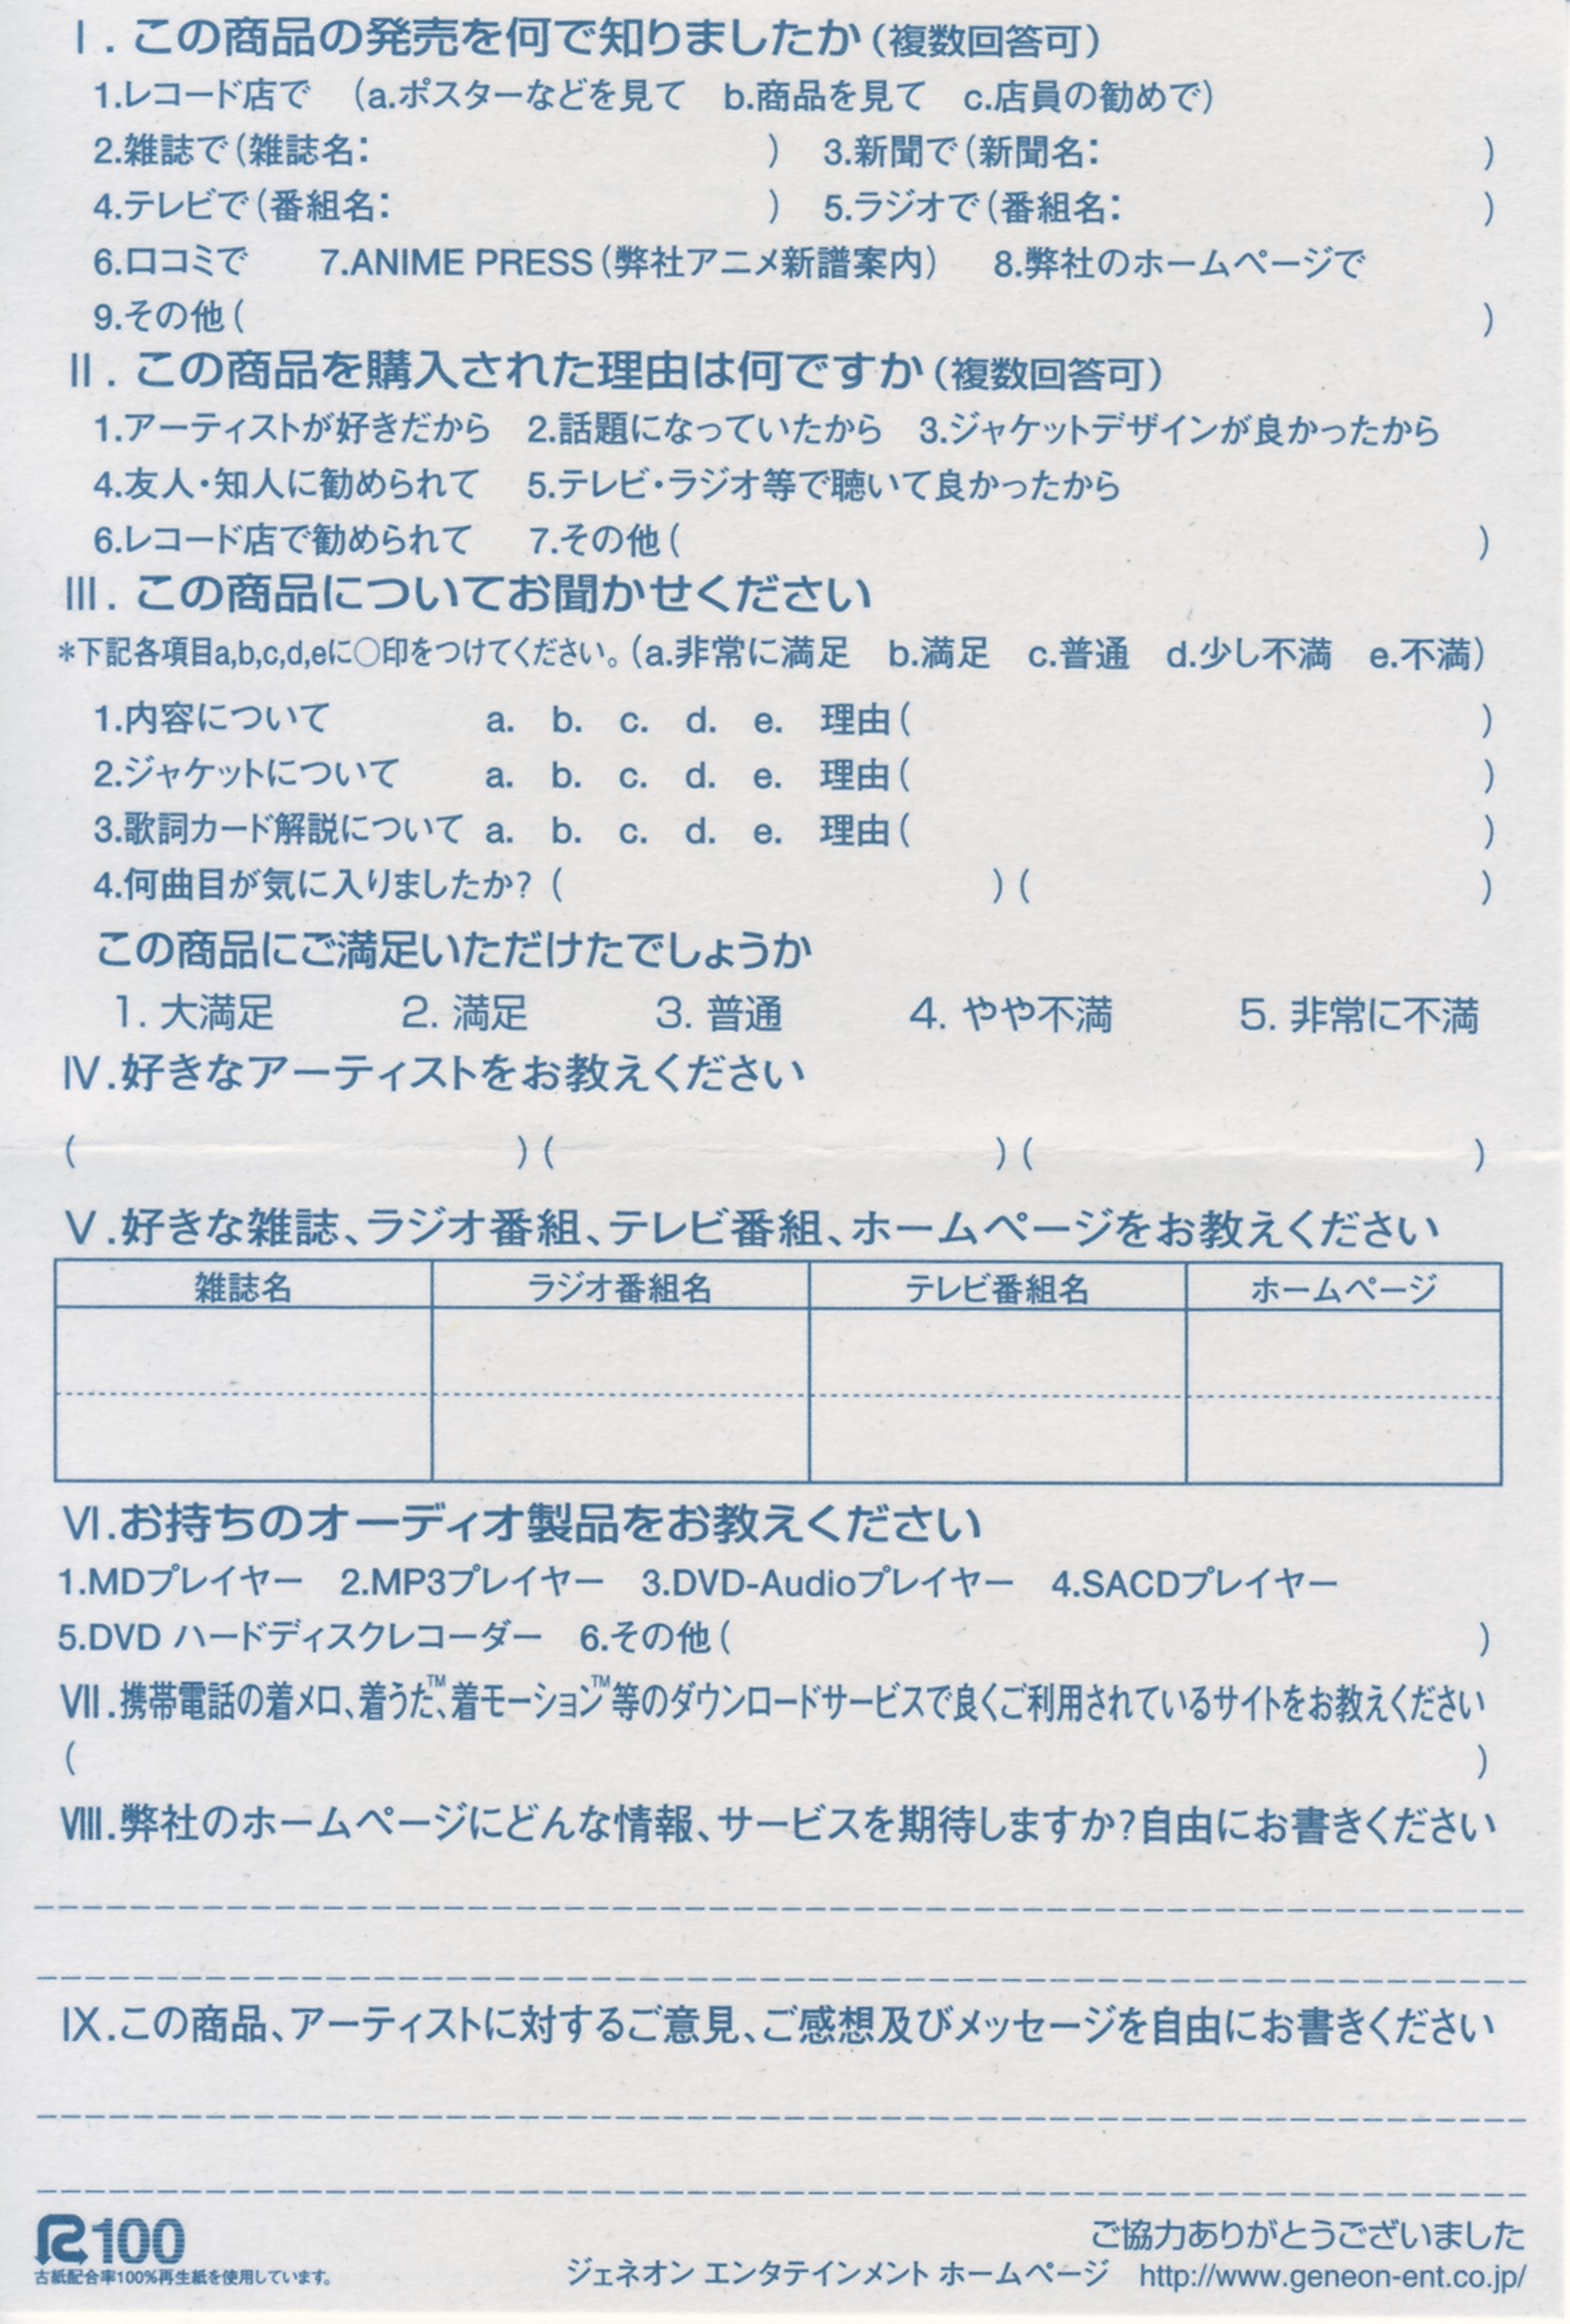 Ⅰ. この商品の発売を何で知りましたか（複数回答可）
1.レコード店で　（a.ポスターなどを見て　b.商品を見て　c.店員の勧めで）
2.雑誌で（雑誌名：　　　）　3.新聞で（新聞名：　　　）
4.テレビで（番組名：　　　）　5.ラジオで（番組名：　　　）
6.口コミで　7.ANIME PRESS（弊社アニメ新譜案内）　8.弊社のホームページで
9.その他（　　　）
Ⅱ. この商品を購入された理由は何ですか（複数回答可）
1.アーティストが好きだから　2.話題になっていたから　3.ジャケットデザインが良かったから
4.友人・知人に勧められて　5.テレビ・ラジオ等で聴いて良かったから
6.レコード店で勧められて　7.その他（　　　）
Ⅲ. この商品についてお聞かせください
＊下記各項目a,b,c,d,eに○印をつけてください。（a.非常に満足　b.満足　c.普通　d.少し不満　e.不満）
1.内容について　a.　b.　c.　d.　e.　理由（　　　）
2.ジャケットについて　a.　b.　c.　d.　e.　理由（　　　）
3.歌詞カード解説について　a.　b.　c.　d.　e.　理由（　　　）
4.何曲目が気に入りましたか?（　　　）（　　　）
この商品にご満足いただけたでしょうか
1. 大満足　2. 満足　3. 普通　4. やや不満　5. 非常に不満
Ⅳ.好きなアーティストをお教えください
（　　　）（　　　）（　　　）
Ⅴ.好きな雑誌、ラジオ番組、テレビ番組、ホームページをお教えください
雑誌名　ラジオ番組名　テレビ番組名　ホームページ
Ⅵ.お持ちのオーディオ製品をお教えください
1.MDプレイヤー　2.MP3プレイヤー　3.DVD-Audioプレイヤー　4.SACDプレイヤー
5.DVD ハードディスクレコーダー　6.その他（　　　）
Ⅶ.携帯電話の着メロ、着うた™、着モーション™等のダウンロードサービスで良くご利用されているサイトをお教えください
（　　　）
Ⅷ.弊社のホームページにどんな情報、サービスを期待しますか?自由にお書きください
Ⅸ.この商品、アーティストに対するご意見、ご感想及びメッセージを自由にお書きください
R100
古紙配合率100%再生紙を使用しています。
ご協力ありがとうございました
ジェネオン エンタテインメント ホームページ　http://www.geneon-ent.co.jp/